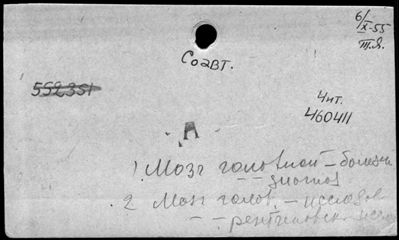 6/X-55
т.я.
Соавт.
552351
Чит.
460411
А
1. Мозг головной – болезни
– – диагноз
2 Мозг голов. – исследов.
– – рентгеновск.